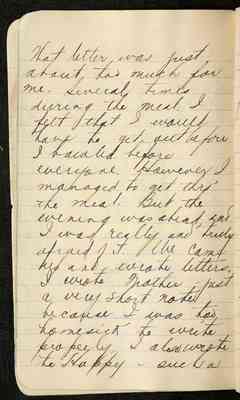 That letter, was just
about, too much for
me. Several times
during the meal I
felt that I would
have to get out afore
I bawled before
everyone. However I
managed to get thr'
the meal. But the
evening was ahead and
I was really and truly
afraid of it. We came
and wrote letters.
I wrote Mother just
a very short note
because I was too
homesick to write
properly. I also wrote
to Happy - such a